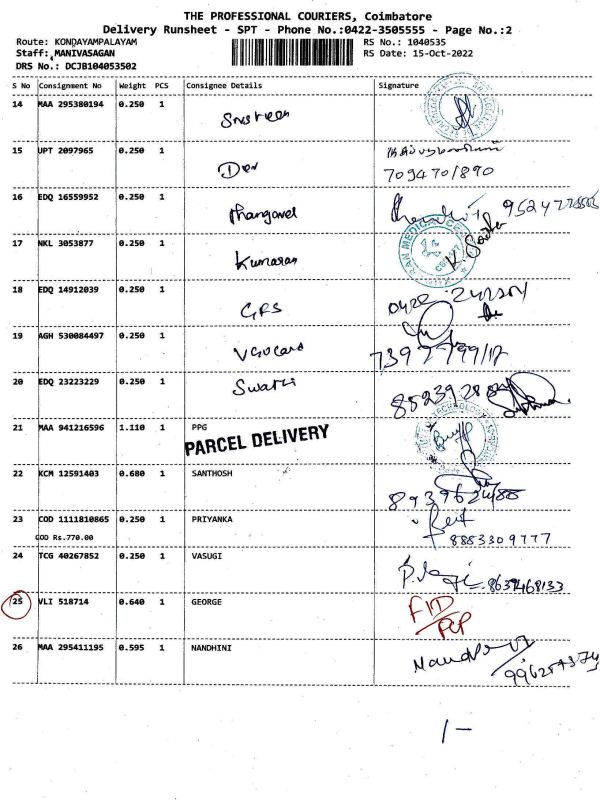 THE PROFESSIONAL COURIERS, Coimbatore
Delivery Runsheet - SPT - Phone No.:0422-3505555 - Page No.:2
Route: KONDAYAMPALAYAM RS No.: 1040535
Staff: MANIVASAGAN RS Date: 15-Oct-2022
DRS No.: DCJB104053502
S No Consignment No Weight PCS Consignee Details Signature
14 MAA 295380194 0.250 1
15 UPT 2097965 0.250 1 Dev
7094701890
16 EDQ 16559952 0.250 1 Thangavel
17 NKL 3053877 0.250 1 Kumaran
18 EDQ 14912039 0.250 1 GRS 0422
19 AGH 530084497 0.250 1
20 EDQ 23223229 0.250 1 Swathi
21 MAA 941216596 1.110 1 PPG
PARCEL DELIVERY
22 KCM 12591403 0.680 1 SANTHOSH
23 COD 1111810865 0.250 1 PRIYANKA
COD Rs.770.00 8883309777
24 TCG 40267852 0.250 1 VASUGI
8637468133
25 VLI 518714 0.640 1 GEORGE
26 MAA 295411195 0.595 1 NANDHINI
1-